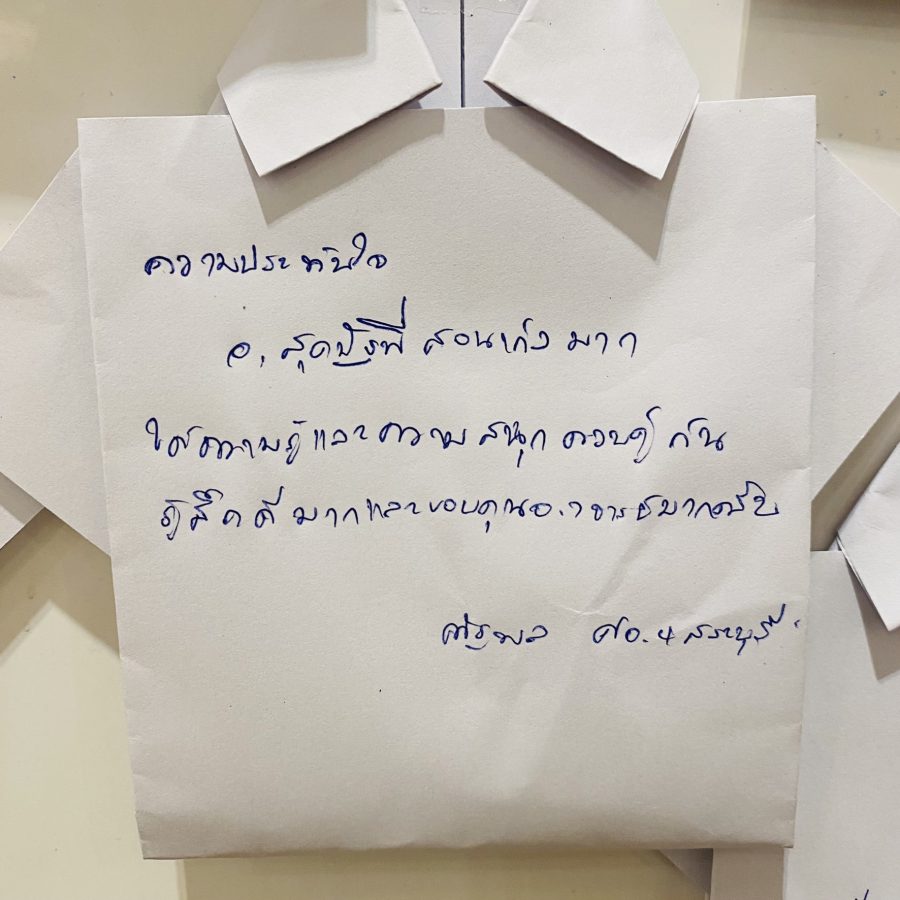 ความประทับใจ
อ. สอนเก่ง มาก
ให้ความรู้และความ สนุก ควบคู่ กัน
รู้สึกดี มากและขอบคุณอาจารย์มากครับ
ศอ.4 สระบุรี